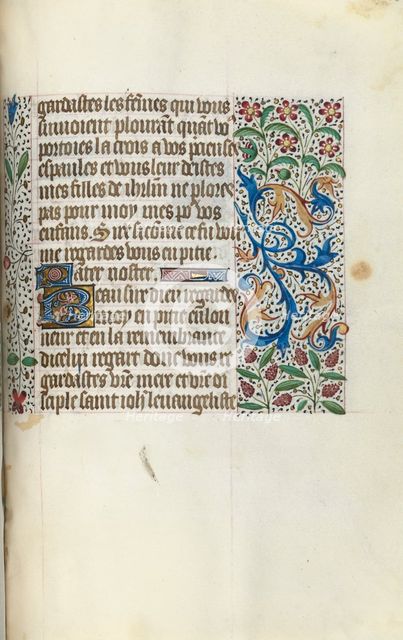 gardastes les fem̄es qui vous
suiuoient plourāt quāt vo⁹
portoies la crois a vos precieuses
espaules et vous leur deistes
mes filles de ihrlm̄ ne plores
pas pour moy mes po⁹ vos
enfans. Sire si cōme ce fu voir
me regardes vous en pitie.
Pater noster.
Beau sire dieu regardes
moy en pitie en lon
neur et en la remembrance
dicelui regart dont vous re
gardastes vr̄e mere et vr̄e di
sciple saint ioh̄ leuangeliste
Heritage
Heritage